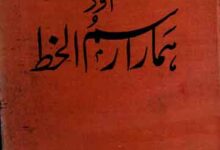 اور
ہمارا رسم الخط